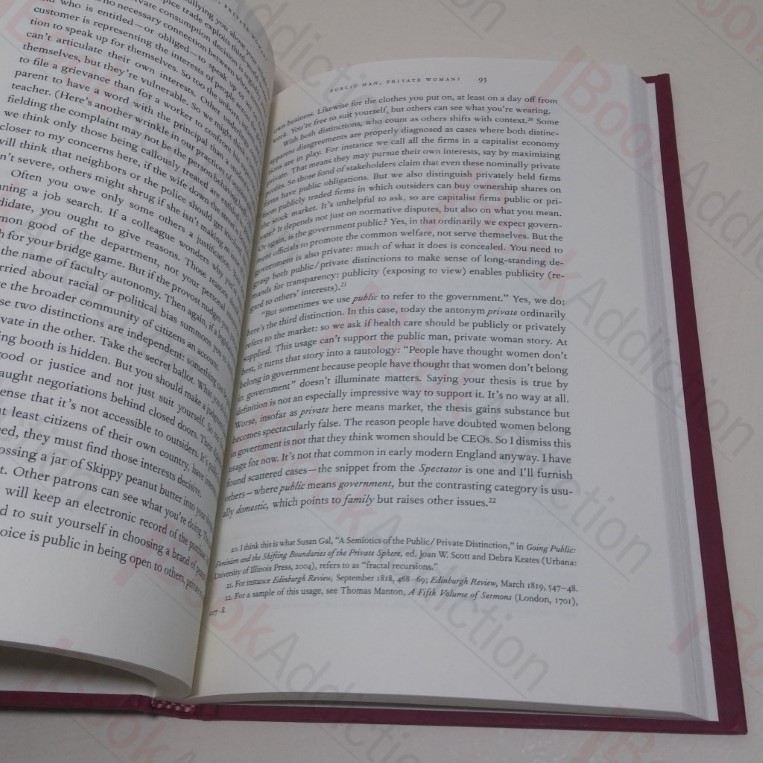 customer is representing the interests of people
tion to speak up for themselves. So too the unborn
can't articulate their own interests. Other
themselves, but they're vulnerable. So we might
to file a grievance than for a worker to complain
parent to have a word with the principal than
teacher. (Here's another wrinkle in our practices
fielding the complaint may not be the person being
we think only those being callously treated
closer to my concerns here, if the wife down the
will think that neighbors or the police should get
n't severe, others might shrug if she isn't making a
Often you owe only some others a justification
ning a job search. If a colleague wonders why you
didate, you ought to give reasons. Those reasons
mon good of the department, not your personal
h for your bridge game. But if the provost nudges
the name of faculty autonomy. Then again, if a
rried about racial or political bias summons you
e the broader community of citizens an account
se two distinctions are independent: something can
vate in the other. Take the secret ballot. What you
ing booth is hidden. But you should make a
ood or justice and not just suit yourself.
aught negotiations behind closed doors. They
ense that it's not accessible to outsiders. It's
t least citizens of their own country, have
ed, they must find those interests decisive.
ossing a jar of Skippy peanut butter into your
t. Other patrons can see what you're doing. The
will keep an electronic record of the purchase
d to suit yourself in choosing a brand of peanut
oice is public in being open to others, private
PUBLIC MAN, PRIVATE WOMAN? 93
own business. Likewise for the clothes you put on, at least on a day off from
work. You're free to suit yourself, but others can see what you're wearing.
With both distinctions, who count as others shifts with context.20 Some
apparent disagreements are properly diagnosed as cases where both distinc-
tions are in play. For instance we call all the firms in a capitalist economy
private. That means they may pursue their own interests, say by maximizing
profits. So those fond of stakeholders claim that even these nominally private
firms have public obligations. But we also distinguish privately held firms
from publicly traded firms in which outsiders can buy ownership shares on
the stock market. It's unhelpful to ask, so are capitalist firms public or pri-
vate? It depends not just on normative disputes, but also on what you mean.
Or again, is the government public? Yes, in that ordinarily we expect govern-
ment officials to promote the common welfare, not serve themselves. But the
government is also private: much of what it does is concealed. You need to
grasp both public/private distinctions to make sense of long-standing de-
mands for transparency: publicity (exposing to view) enables publicity (re-
gard to others' interests).21
"But sometimes we use public to refer to the government." Yes, we do:
here's the third distinction. In this case, today the antonym private ordinarily
refers to the market: so we ask if health care should be publicly or privately
supplied. This usage can't support the public man, private woman story. At
best, it turns that story into a tautology: "People have thought women don't
belong in government because people have thought that women don't belong
in government" doesn't illuminate matters. Saying your thesis is true by
definition is not an especially impressive way to support it. It's no way at all.
Worse, insofar as private here means market, the thesis gains substance but
becomes spectacularly false. The reason people have doubted women belong
in government is not that they think women should be CEOs. So I dismiss this
usage for now. It's not that common in early modern England anyway. I have
found scattered cases—the snippet from the Spectator is one and I'll furnish
others—where public means government, but the contrasting category is usu-
ally domestic, which points to family but raises other issues.22
20. I think this is what Susan Gal, "A Semiotics of the Public/Private Distinction," in Going Public:
Feminism and the Shifting Boundaries of the Private Sphere, ed. Joan W. Scott and Debra Keates (Urbana:
University of Illinois Press, 2004), refers to as "fractal recursions."
21. For instance Edinburgh Review, September 1818, 468–69; Edinburgh Review, March 1819, 547–48.
22. For a sample of this usage, see Thomas Manton, A Fifth Volume of Sermons (London, 1701),
BookAddiction